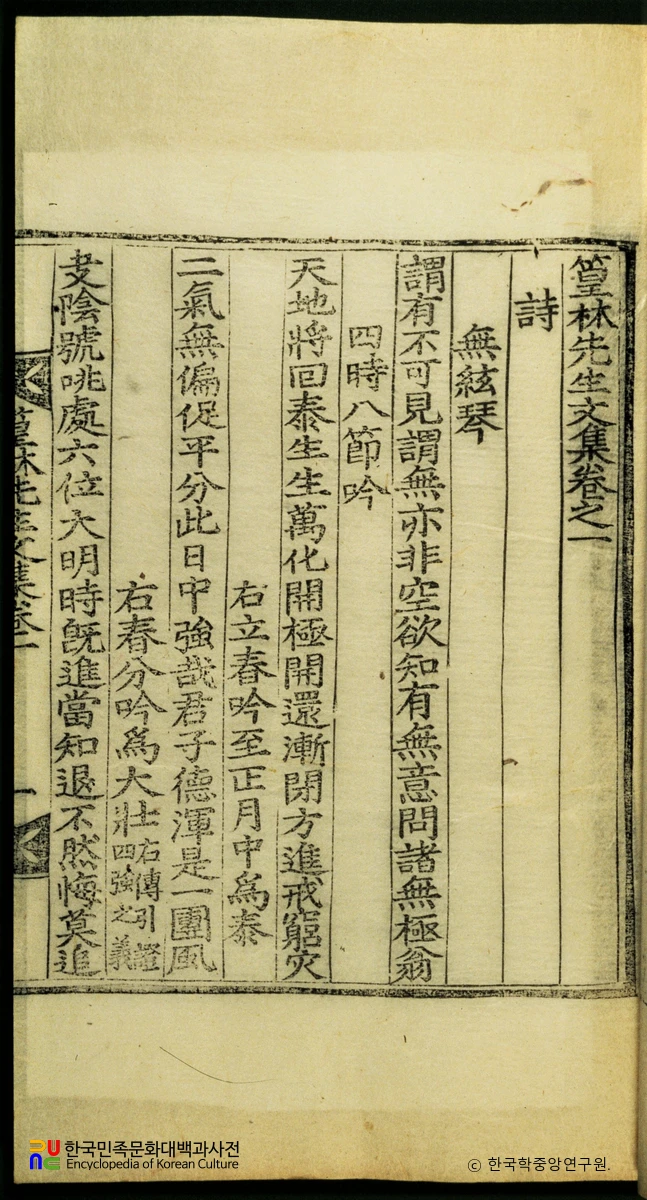 篁林先生文集卷之一
詩
無絃琴
謂有不可見謂無亦非空欲知有無意問諸無極翁
四時八節吟
天地將回泰生生萬化開極開還漸閉方進戒窮灾
右立春吟至正月中爲泰
二氣無偏促平分此日中強哉君子德渾是一團風
右春分吟爲大壯右傳引證四強之義
陰號咷處六位大明時旣進當知退不然悔莫追
篁林先生文集卷一
一
한국민족문화대백과사전
Encyclopedia of Korean Culture
ⓒ 한국학중앙연구원.